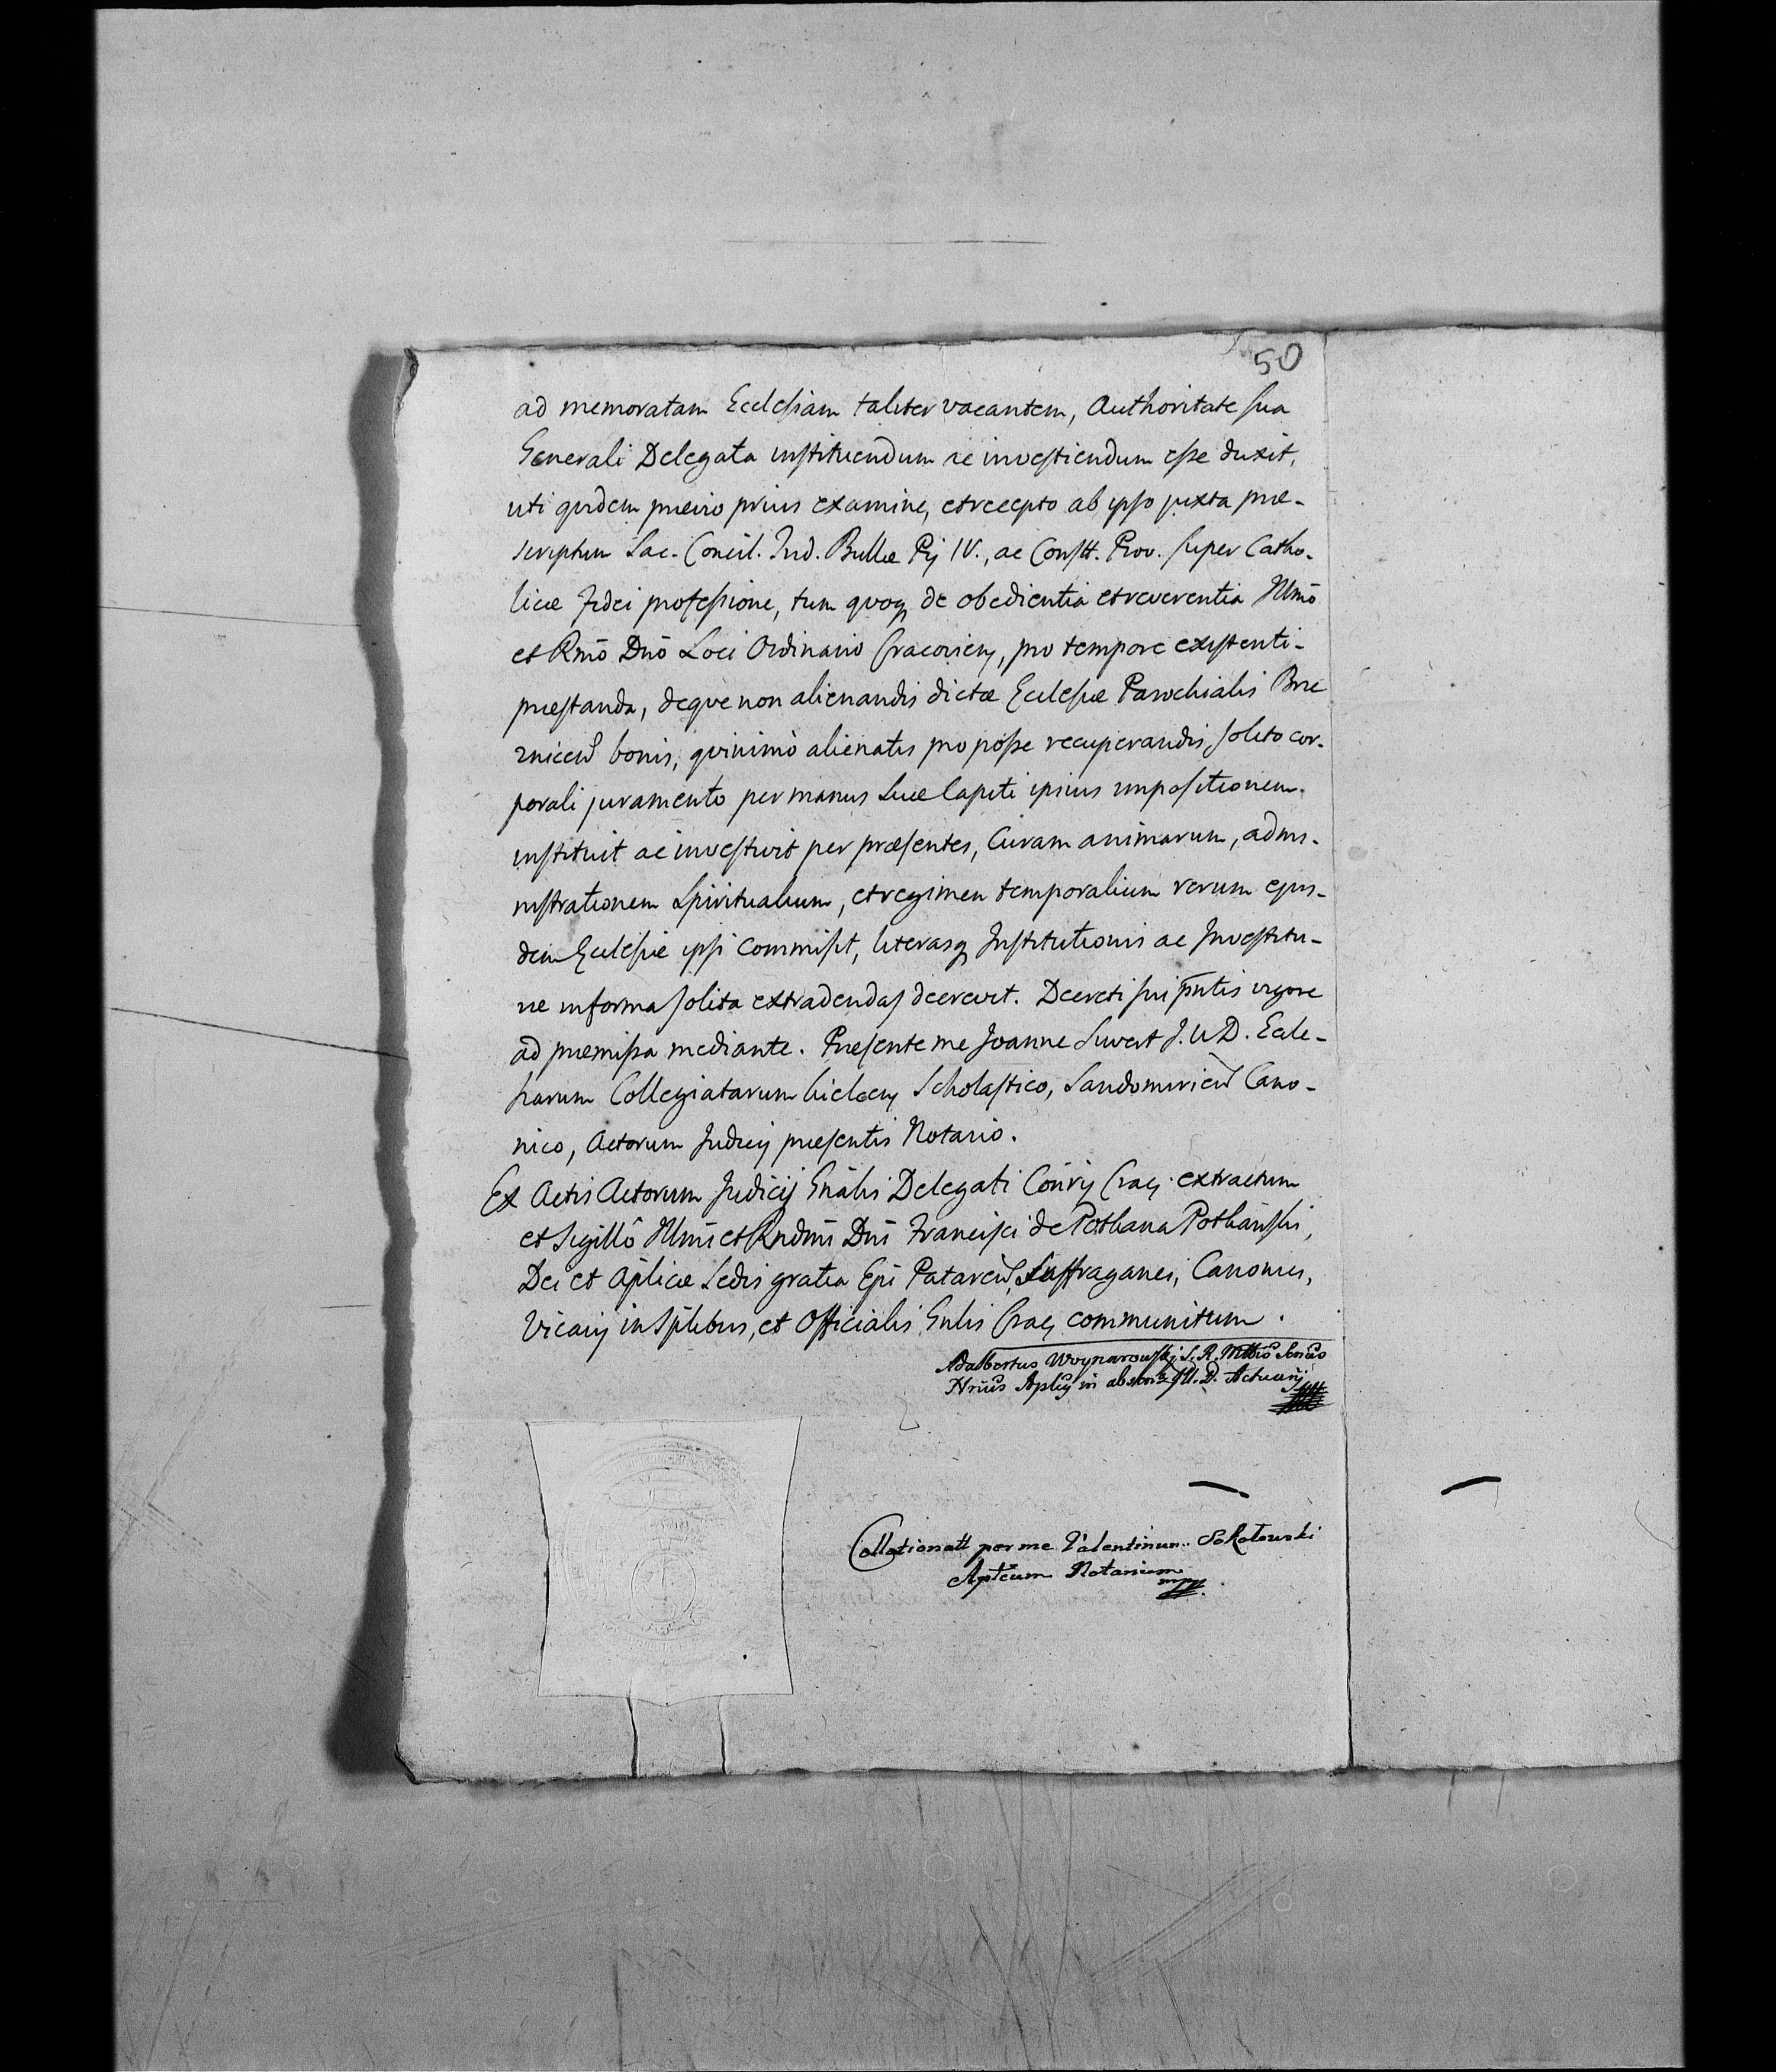 50
ad memoratam Ecclesiam taliter vacantem, Authoritate sua
Generali Delegata instituendum ac investiendum esse duxit,
uti quidem prævio prius examine, et recepto ab ipso juxta præ-
scriptum Sac. Concil. Trid. Bullæ Pij IV., ac Constt. Prov. super Catho-
licæ Fidei professione, tum quoq de obedientia et reverentia Illmō
et Rmō Dnō Loci Ordinario Cracovien, pro tempore existenti-
præstanda, deque non alienandis dictæ Ecclesiæ Parochialis
bonis, quinimò alienatis pro posse recuperandis, solito cor-
porali juramento per manus suæ Capiti ipsius impositionem
instituit ac investivit per præsentes, Curam animarum, admi-
nistrationem Spiritualium, et regimen temporalium rerum ejus-
dem Ecclesiæ ipsi commisit, literasq Institutionis ac Investitu-
ræ in forma solita extradendas decrevit. Decreti sui pntis vigore
ad præmissa mediante. Præsente me Joanne J. U. D. Eccle-
siarum Collegiatarum Kielcen Scholastico, Sandomirien Cano-
nico, Actorum Judicij præsentis Notario.
Ex Actis Actorum Judicij Gnālis Delegati Crac. extractum
et Sigillô Illmi et Rndmi Dni Francisci de Potkana Potkański,
Dei et Aplicæ Sedis gratia Epi Pataren, Suffraganei, Canonici,
Vicarij in Splibus, et Officialis Gnlis Crac communitum.
Adalbertus Woynarowskj S. R.
in J. U. D. Actuarij
Collationatt per me Valentinum Sokołowski
Aplcum Notarium
mpp.